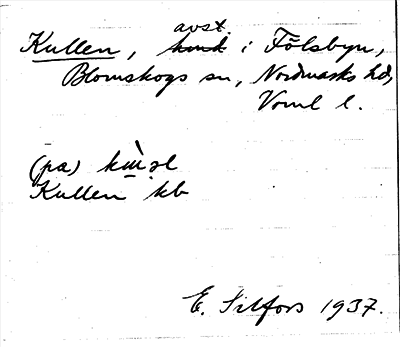 avst.
Kullen, hmk i Fölsbyn,
Blomskogs sn, Nordmarks hd,
Värml l.
(pa)
Kullen kb
E. Silfors 1937.